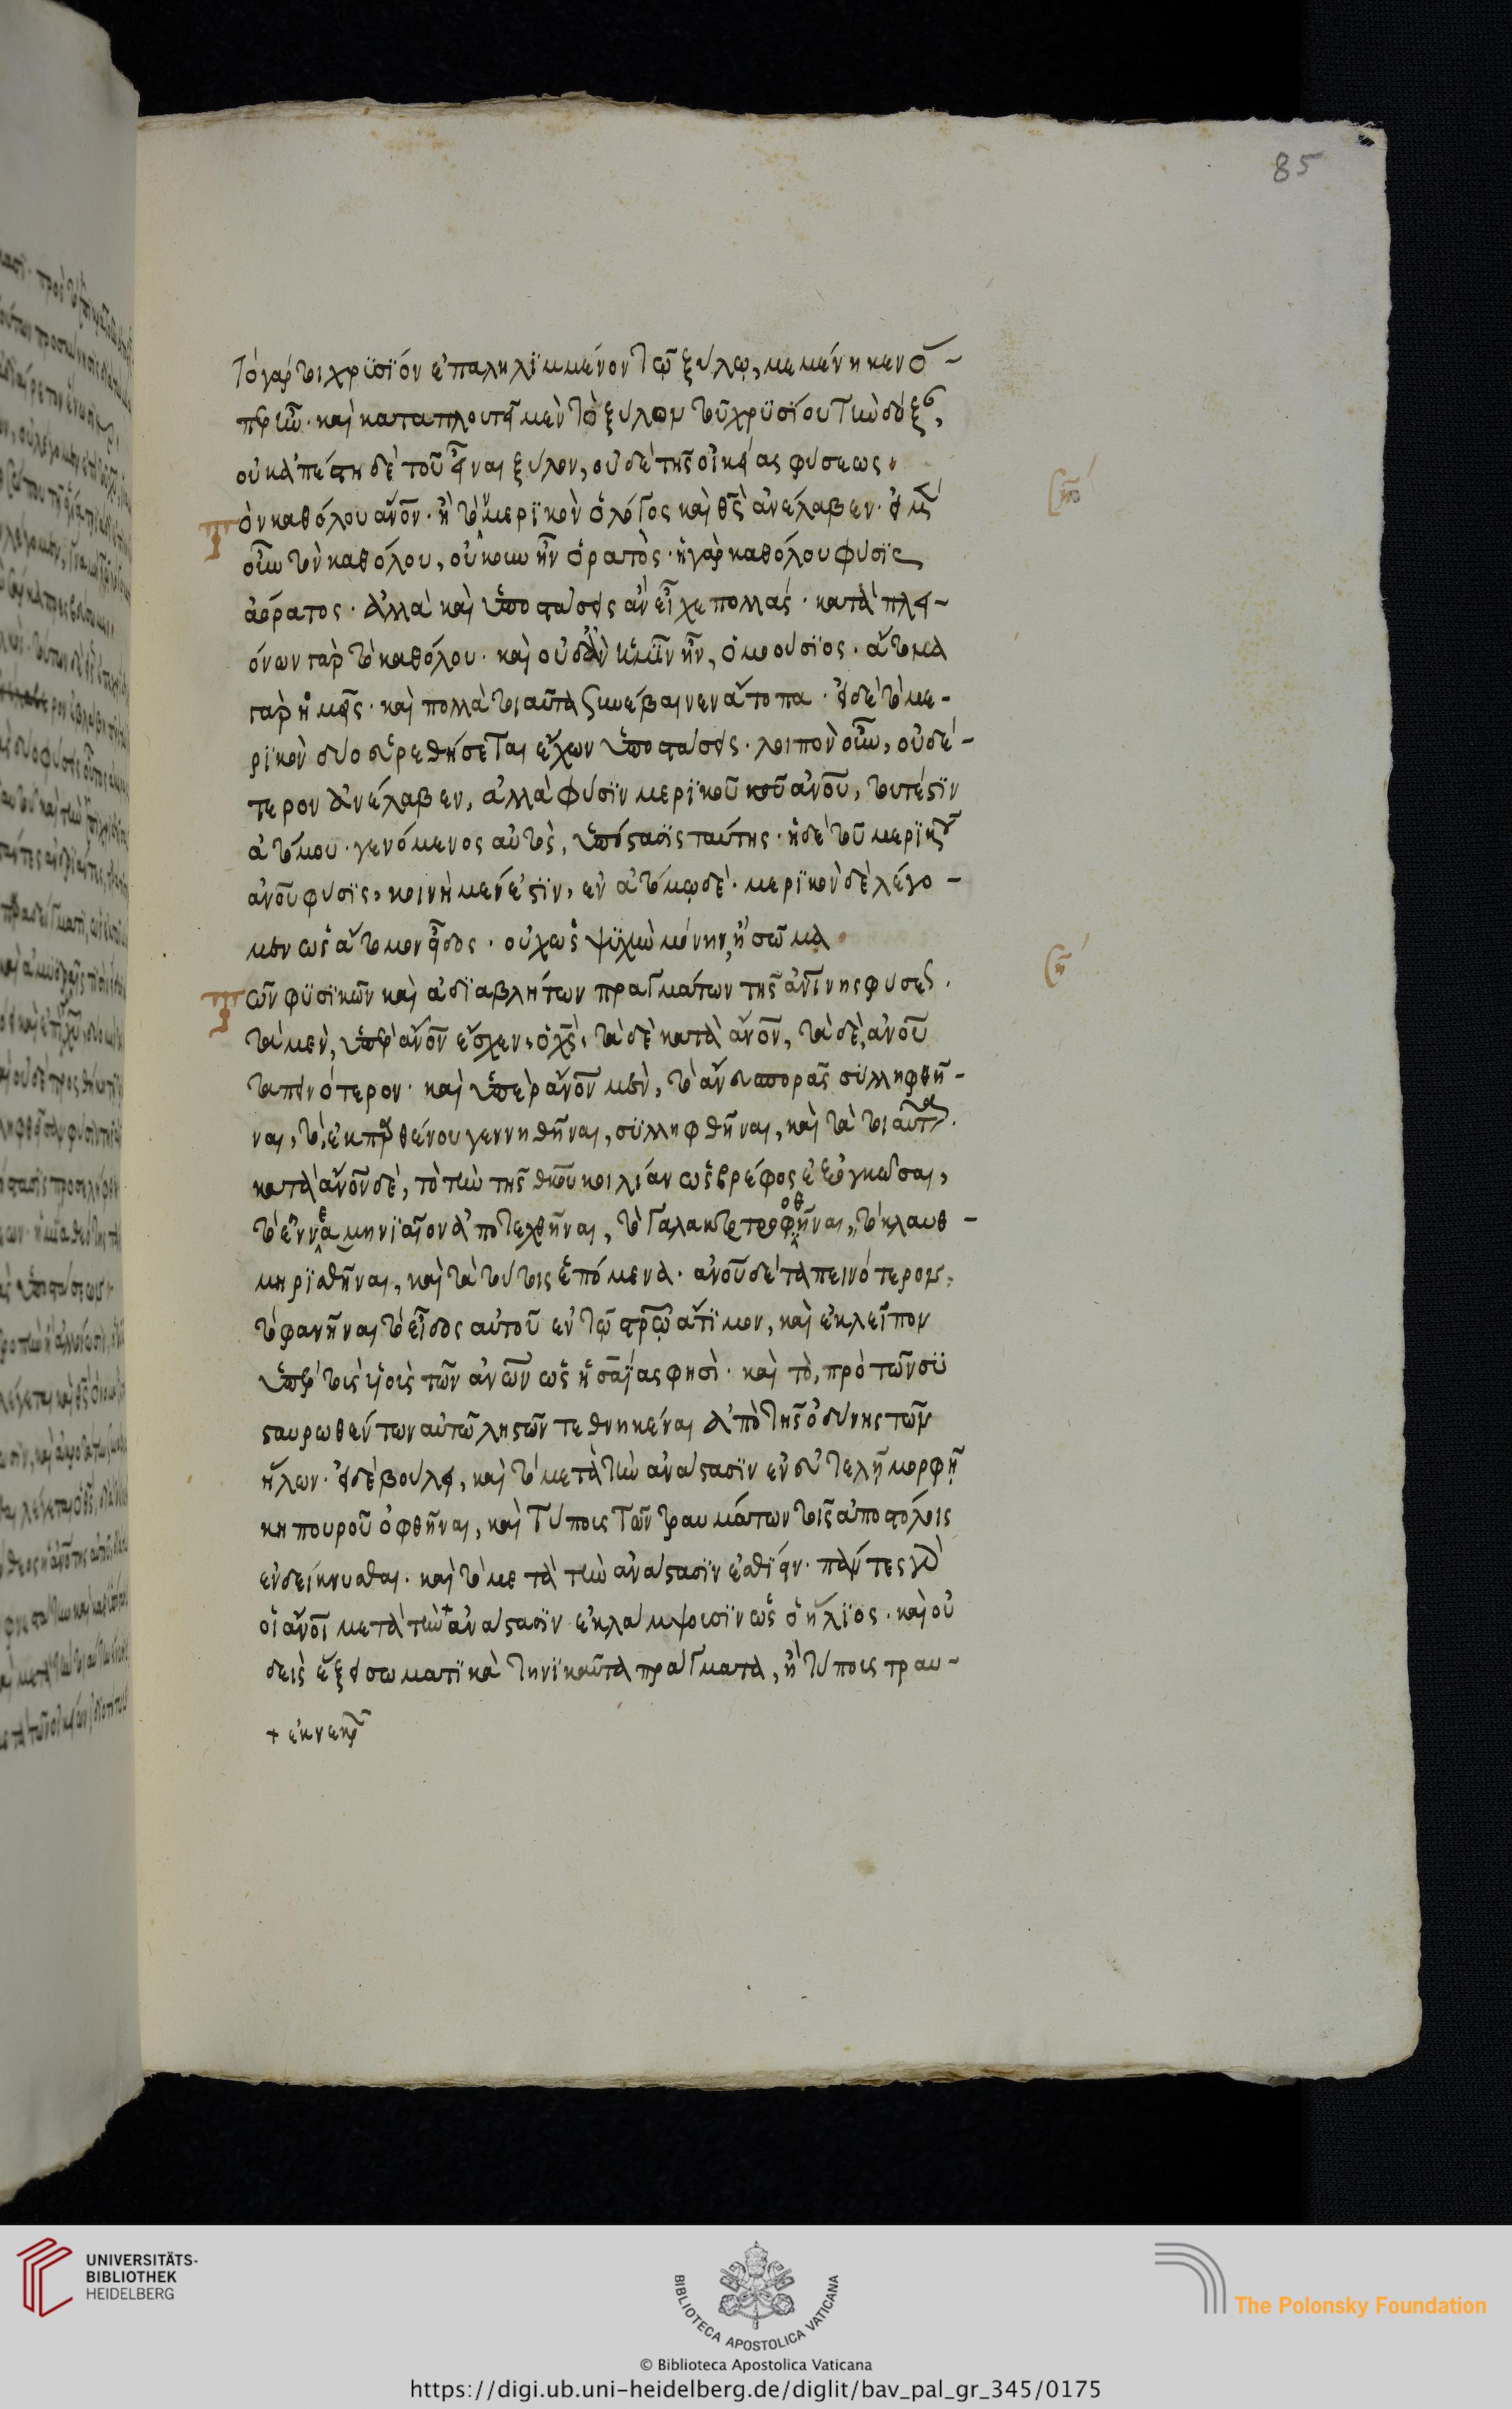 85
Τὸ γάρ τοι χρϋσΐον ἐπαληλϊμμένον τῷ ξύλῳ, μεμένηκεν ὃ-
περ ἦν. καὶ καταπλουτεῖ μὲν τὸ ξύλον τοῦ χρϋσΐου τὴν δόξαν,
οὐκ ἀπέστη δὲ τοῦ εἶναι ξύλον, οὐδὲ τῆς οἰκείας φύσεως.
Τὸν καθόλου ἄνον. ἢ τὸν μερϊκὸν ὁ λόγος καὶ θς ἀνέλαβεν. εἰ μὲν
οὖν τὸν καθόλου, οὐκ οὖν ἦν ὁρατὸς. ἡ γὰρ καθόλου φύσϊς
ἀόρατος. ἀλλὰ καὶ ὑποστάσεις ἂν εἶχε πολλάς. κατὰ πλει-
όνων γὰρ τὸ καθόλου. καὶ οὐδὲν ἡμῖν ἦν, ὁμοούσϊος. ἄτομα
γὰρ ἡμεῖς. καὶ πολλὰ τοιαῦτα συνέβαινεν ἄτοπα. εἰ δὲ τὸ με-
ρϊκὸν δύο εὑρεθήσεται ἔχων ὑποστάσεις. λοιπὸν οὖν, οὐδέ-
τερον ἀνέλαβεν, ἀλλὰ φύσϊν μερϊκοῦ ἀνοῦ, τουτέστϊν
ἀτόμου. γενόμενος αὐτὸς, ὑπόστασϊς ταύτης. ἡ δὲ τοῦ μερϊκοῦ
ἀνοῦ φύσϊς, κοινὴ μέν ἐστϊν, ἐν ἀτόμῳ δὲ. μερϊκὸν δὲ λέγο-
μεν ὡς ἄτομον εἶδος. οὐχ ὡς ψϋχὴν μόνην, ἢ σῶμα
Τῶν φϋσϊκῶν καὶ ἀδϊαβλήτων πραγμάτων τῆς ἀνίνης φύσεως.
τὰ μὲν, ὑπὲρ ἄνον ἔσχεν, ὁ χς, τὰ δὲ κατὰ ἄνον, τὰ δὲ, ἀνοῦ
ταπεινότερον. καὶ ὑπὲρ ἄνον μὲν, τὸ ἄνευ σπορᾶς σϋλληφθῆ-
ναι, τὸ, ἐκ παρθένου γεννηθῆναι, σϋλληφθῆναι, καὶ τὰ τοιαῦτα.
κατὰ ἄνον δὲ, τὸ τὴν τῆς θκου κοιλίαν ὡς βρέφος ἐξογκῶσαι,
τὸ ἐννεαμηνϊαῖον ἀποτεχθῆναι, τὸ γαλακτοτροφηθῆναι, τὸ κλαυθ-
μηρϊσθῆναι, καὶ τὰ τούτοις ἑπόμενα. ἀνοῦ δὲ ταπεινότερον,
τὸ φανῆναι τὸ εἶδος αὐτοῦ ἐν τῷ στρῷ ἄτϊμον, καὶ ἐκλεῖπον
ὑπὲρ τοὺς ϋἱοὺς τῶν ἀνων ὡς ἡσαΐας φησὶ. καὶ τὸ, πρὸ τῶν σϋ
σταυρωθέντων αὐτῷ λῃστῶν τεθνηκέναι ἀπὸ τῆς ὀδύνης τῶν
ἥλων. εἰ δὲ βούλει, καὶ τὸ μετὰ τὴν ἀνάστασϊν ἐν εὐτελῆ μορφῇ
κηπουροῦ ὀφθῆναι, καὶ τύπους τῶν τραυμάτων τοῖς ἀποστόλοις
ἐνδείκνυσθαι. καὶ τὸ μετὰ τὴν ἀνάστασϊν ἐσθΐειν. πάντες γὰρ
οἱ ἄνοι μετὰ τὴν + ἀνάστασϊν ἐκλάμψουσϊν ὡς ὁ ἥλϊος. καὶ οὐ
δεὶς ἕξει σωματϊκὰ τηνϊκαῦτα πράγματα, ἢ τύπους τραυ-
+ ἐκ νεκρῶν
UNIVERSITÄTS-
BIBLIOTHEK
HEIDELBERG
BIBLIOTECA APOSTOLICA VATICANA
The Polonsky Foundation
© Biblioteca Apostolica Vaticana
https://digi.ub.uni-heidelberg.de/diglit/bav_pal_gr_345/0175